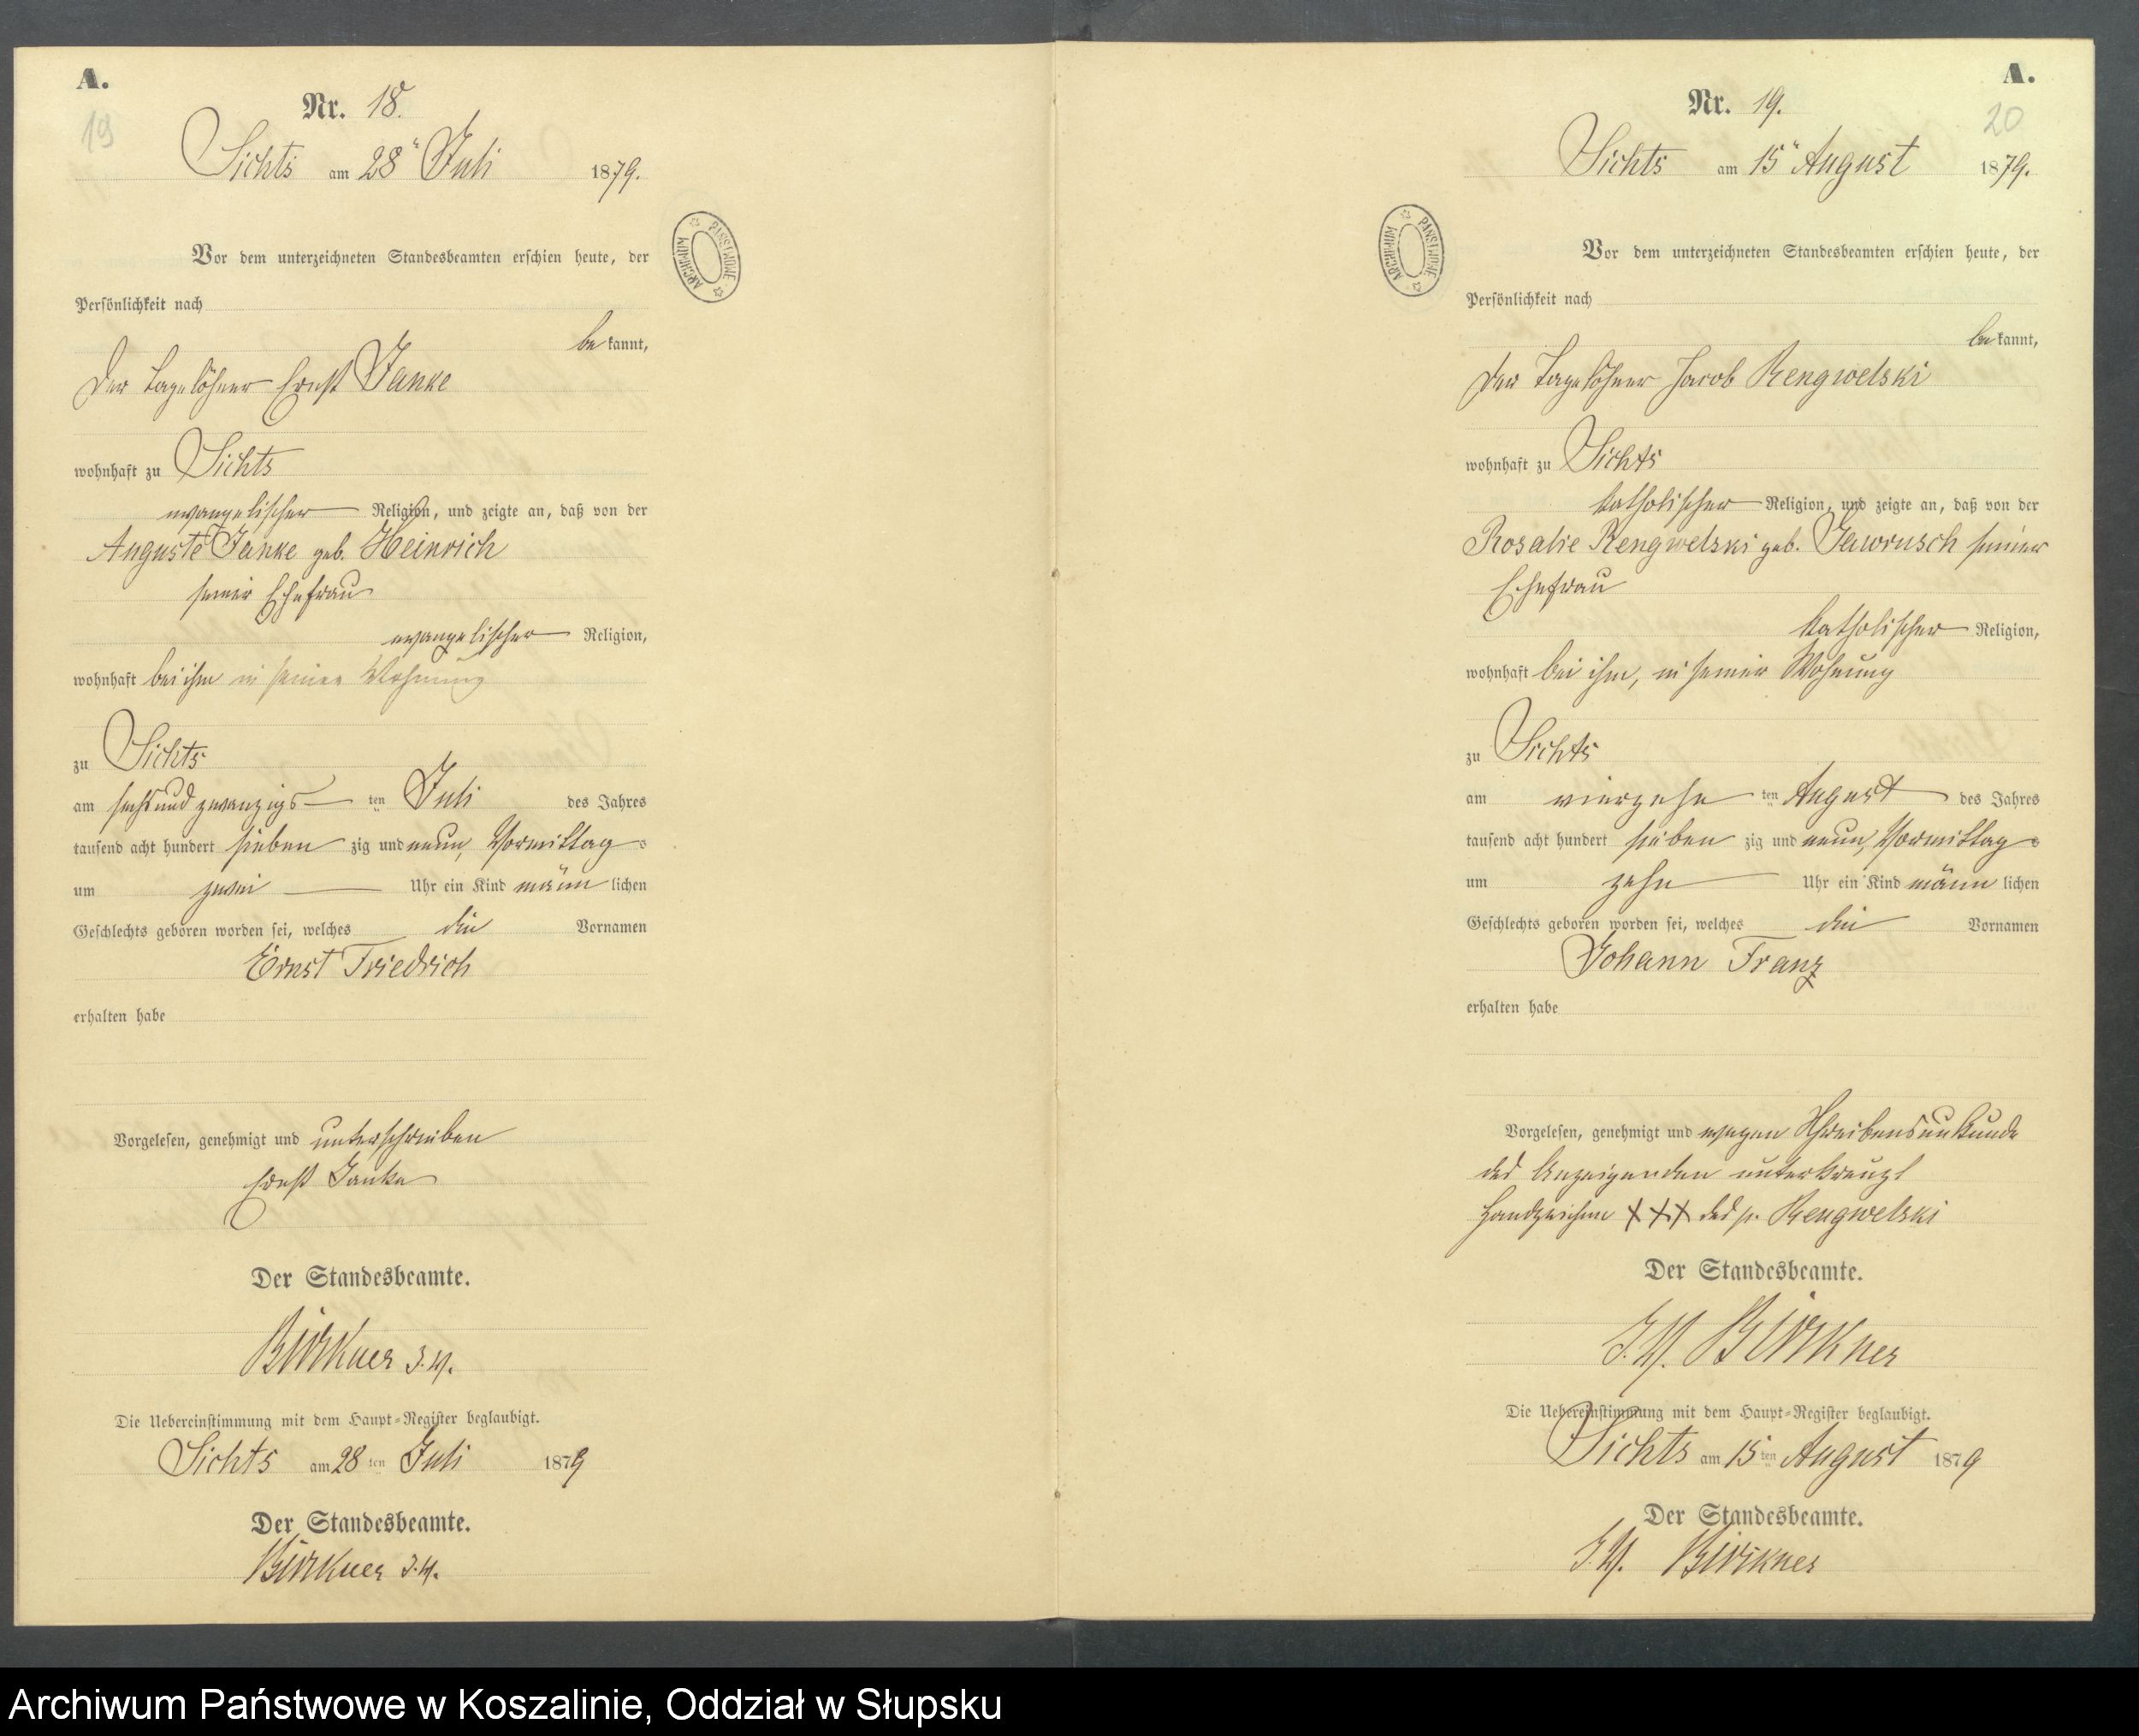 A.
19
Nr. 18.
Sichts am 28ᵗ Juli 1879.
Vor dem unterzeichneten Standesbeamten erschien heute, der
Persönlichkeit nach
bekannt,
der Tagelöhner Ernst Janke
wohnhaft zu Sichts
evangelischer Religion, und zeigte an, daß von der
Auguste Janke geb. Heinrich
seiner Ehefrau
evangelischer Religion,
wohnhaft bei ihm in seiner Wohnung
zu Sichts
am sechs und zwanzigsten Juli des Jahres
tausend acht hundert siebenzig und neun, Vormittags
um zwei Uhr ein Kind männlichen
Geschlechts geboren worden sei, welches die Vornamen
Ernst Friedrich
erhalten habe
Vorgelesen, genehmigt und unterschrieben
Ernst Janke
Der Standesbeamte.
Birkner I.V.
Die Uebereinstimmung mit dem Haupt-Register beglaubigt.
Sichts am 28ten Juli 1879
Der Standesbeamte.
Birkner I.V.
ARCHIWUM PAŃSTWOWE
A.
20
Nr. 19.
Sichts am 15ᵗ August 1879.
Vor dem unterzeichneten Standesbeamten erschien heute, der
Persönlichkeit nach
bekannt,
der Tagelöhner Jacob Rengwelski
wohnhaft zu Sichts
katholischer Religion, und zeigte an, daß von der
Rosalie Rengwelski geb. Jawrusch seiner
Ehefrau
katholischer Religion,
wohnhaft bei ihm, in seiner Wohnung
zu Sichts
am vierzehnten August des Jahres
tausend acht hundert siebenzig und neun, Vormittags
um zehn Uhr ein Kind männlichen
Geschlechts geboren worden sei, welches die Vornamen
Johann Franz
erhalten habe
Vorgelesen, genehmigt und wegen Schreibensunkunde
des Anzeigenden unterkreuzt
Handzeichen XXX des p. Rengwelski
Der Standesbeamte.
I.V. Birkner
Die Uebereinstimmung mit dem Haupt-Register beglaubigt.
Sichts am 15ten August 1879
Der Standesbeamte.
I.V. Birkner
ARCHIWUM PAŃSTWOWE
Archiwum Państwowe w Koszalinie, Oddział w Słupsku